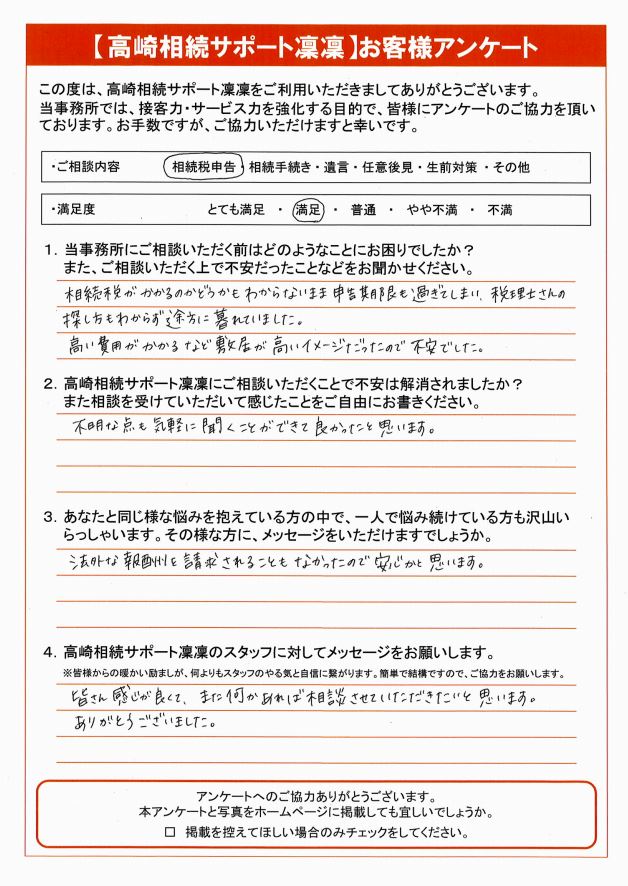 【高崎相続サポート凛凛】お客様アンケート
この度は、高崎相続サポート凛凛をご利用いただきましてありがとうございます。
当事務所では、接客力・サービス力を強化する目的で、皆様にアンケートのご協力を頂い
ております。お手数ですが、ご協力いただけますと幸いです。
・ご相談内容 相続税申告・相続手続き・遺言・任意後見・生前対策・その他
・満足度 とても満足 ・ 満足 ・ 普通 ・ やや不満 ・ 不満
1. 当事務所にご相談いただく前はどのようなことにお困りでしたか？
また、ご相談いただく上で不安だったことなどをお聞かせください。
相続税がかかるのかどうかもわからないまま申告期限も過ぎてしまい、税理士さんの
探し方もわからず途方に暮れていました。
高い費用がかかるなど敷居が高いイメージだったので不安でした。
2. 高崎相続サポート凛凛にご相談いただくことで不安は解消されましたか？
また相談を受けていただいて感じたことをご自由にお書きください。
不明な点も気軽に聞くことができて良かったと思います。
3. あなたと同じ様な悩みを抱えている方の中で、一人で悩み続けている方も沢山い
らっしゃいます。その様な方に、メッセージをいただけますでしょうか。
法外な報酬を請求されることもなかったので安心かと思います。
4. 高崎相続サポート凛凛のスタッフに対してメッセージをお願いします。
※皆様からの暖かい励ましが、何よりもスタッフのやる気と自信に繋がります。簡単で結構ですので、ご協力をお願いします。
皆さん感じが良くて、また何かあれば相談させていただきたいと思います。
ありがとうございました。
アンケートへのご協力ありがとうございます。
本アンケートと写真をホームページに掲載しても宜しいでしょうか。
□ 掲載を控えてほしい場合のみチェックをしてください。